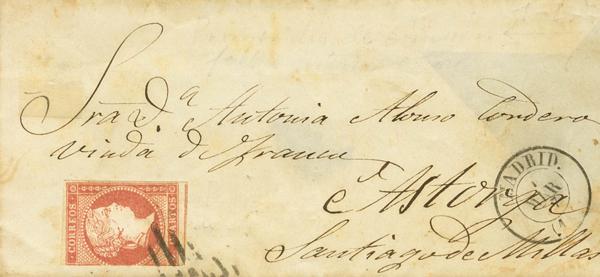 Sra D.ª Antonia Alonso Cordero
viuda de Franco
Astorga
Santiago de Millas
CORREOS
CUARTOS
MADRID.